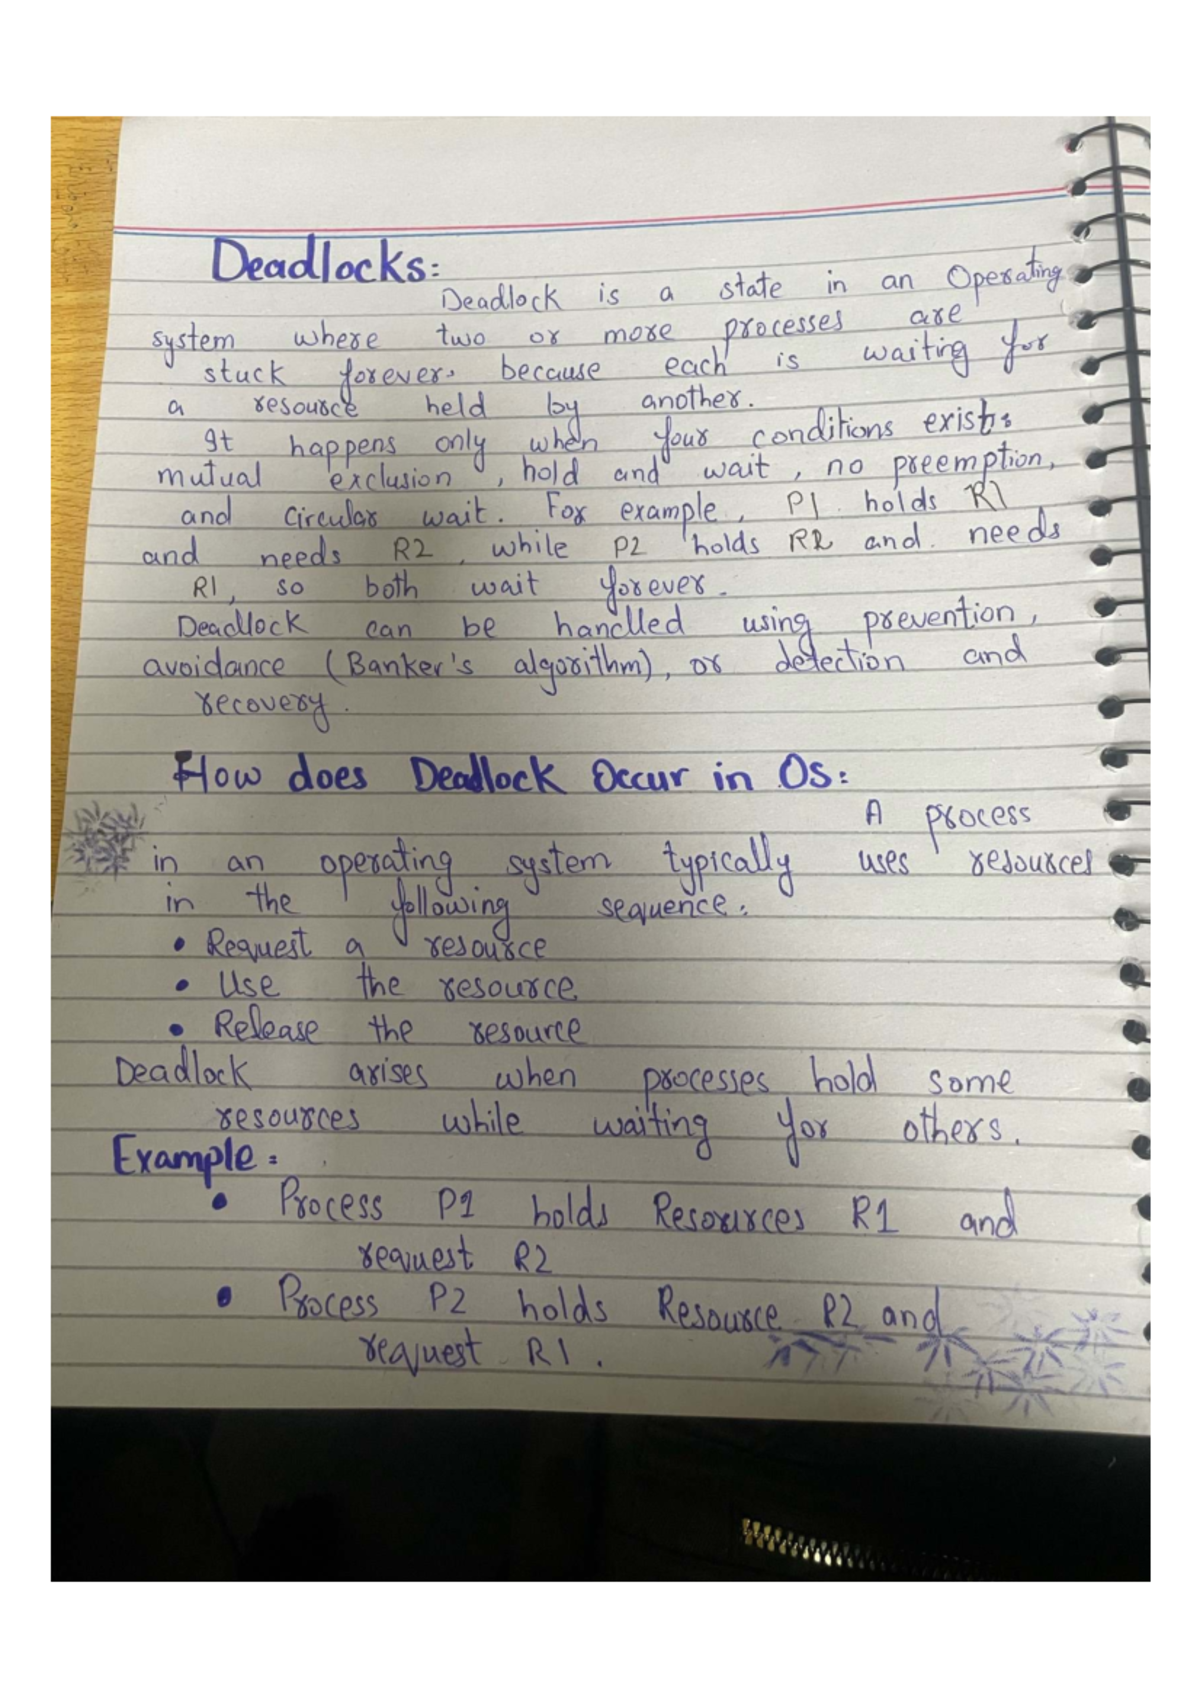 Deadlocks:
Deadlock is a state in an Operating
system where two or more processes are
stuck forever. because each is waiting for
a resource held by another.
It happens only when four conditions exist:
mutual exclusion, hold and wait, no preemption,
and circular wait. For example, P1 holds R1
and needs R2, while P2 holds R2 and needs
R1, so both wait forever.
Deadlock can be handled using prevention,
avoidance (Banker's algorithm), or detection and
recovery.
How does Deadlock Occur in OS:
A process
in an operating system typically uses resources
in the following sequence:
• Request a resource
• Use the resource
• Release the resource
Deadlock arises when processes hold some
resources while waiting for others.
Example:
• Process P1 holds Resources R1 and
request R2
• Process P2 holds Resource R2 and
request R1.